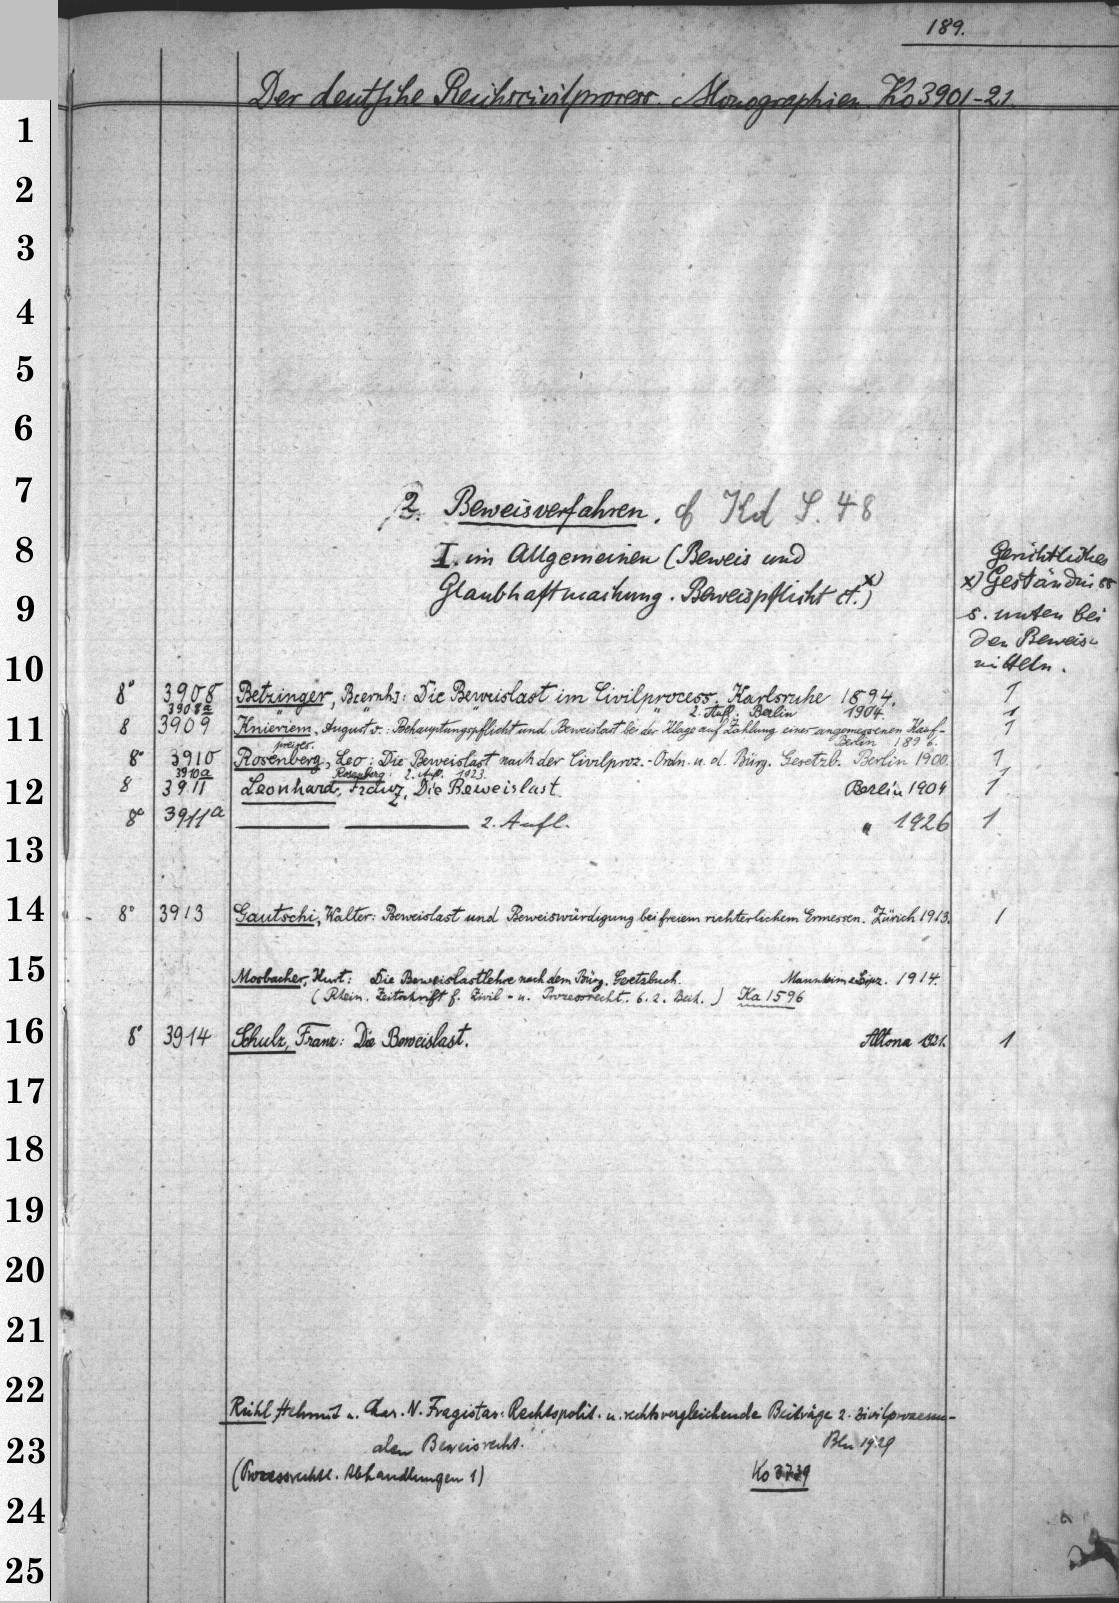 189.
Der deutsche Reichscivilprocess. Monographien. Ko3901-21.
1
2
3
4
5
6
7
2. Beweisverfahren. cf Kd S. 48
8
I. im Allgemeinen (Beweis und
Glaubhaftmachung. Beweispflicht ct.) x)
Gerichtliches
x) Geständniss
s. unten bei
den Beweis-
mitteln.
9
10
8° 3908 Betzinger, Bernh.: Die Beweislast im Civilprocess. Karlsruhe 1894. 1
3908a " " " 2. Aufl. Berlin 1904. 1
11
8 3909 Knieriem, August v.: Behauptungspflicht und Beweislast bei der Klage auf Zahlung einer angemessenen Kauf- 1
preises. Berlin 1896.
8° 3910 Rosenberg, Leo: Die Beweislast nach der Civilproz.-Ordn. u. d. Bürg. Gesetzb. Berlin 1900. 1
3910a Rosenberg: 2. Aufl. 1923. 1
12
8 3911 Leonhard, Franz, Die Beweislast. Berlin 1904 1
8° 3911a 2. Aufl. " 1926 1
13
14
8° 3913 Gautschi, Walter: Beweislast und Beweiswürdigung bei freiem richterlichem Ermessen. Zürich 1913. 1
15
Mosbacher, Kurt: Die Beweislastlehre nach dem Bürg. Gesetzbuch. Mannheim Leipz. 1914.
(Rhein. Zeitschrift f. Zivil- u. Prozessrecht. 6. 2. Beih.) Ka 1596
16
8° 3914 Schulz, Franz: Die Beweislast. Altona 1931. 1
17
18
19
20
21
22
Rühl, Helmut u. Char. N. Fragistas: Rechtspolit. u. rechtsvergleichende Beiträge z. zivilprozessu-
23
alen Beweisrecht. Bln 1929
(Prozessrechtl. Abhandlungen 1) Ko 3739
24
25